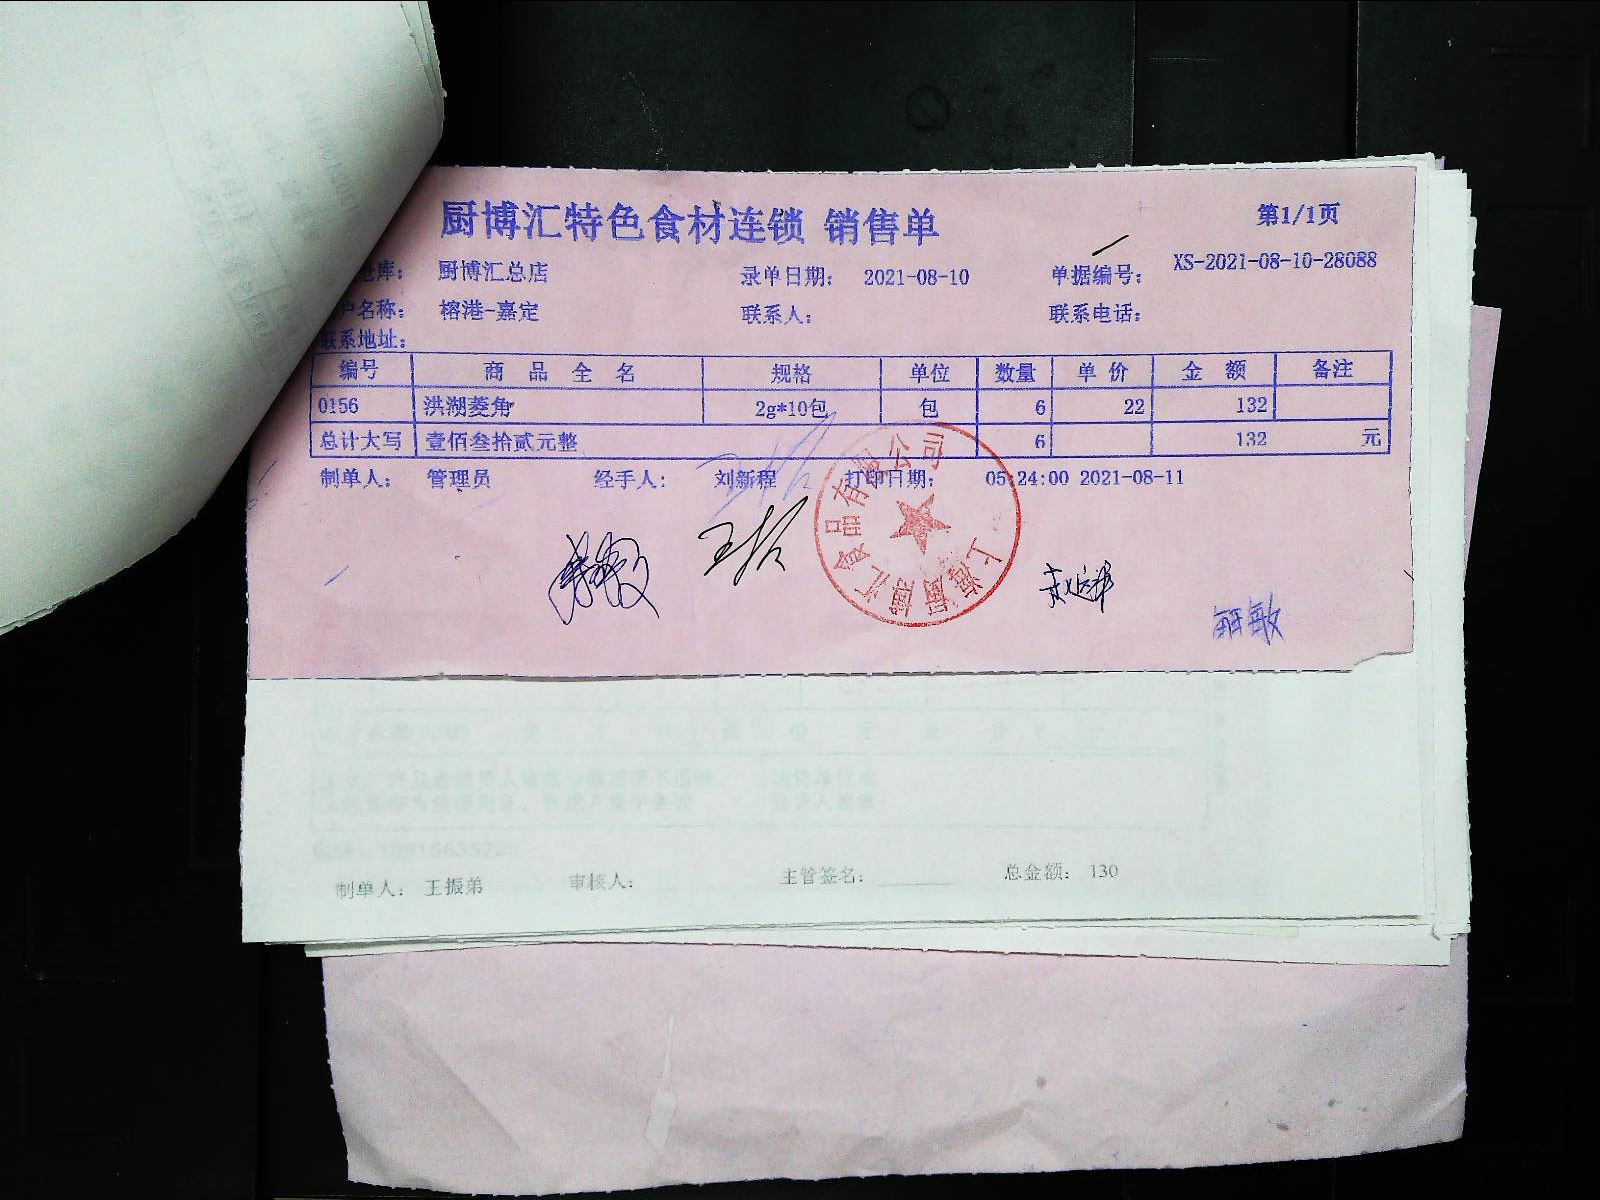 厨博汇特色食材连锁 销售单 第1/1页
库: 厨博汇总店 录单日期: 2021-08-10 单据编号: XS-2021-08-10-28088
户名称: 榕港-嘉定 联系人: 联系电话:
联系地址:
编号 商品全名 规格 单位 数量 单价 金额 备注
0156 洪湖菱角 2g*10包 包 6 22 132
总计大写 壹佰叁拾贰元整 6 132 元
制单人: 管理员 经手人: 刘新程 打印日期: 05:24:00 2021-08-11
上海厨博汇食品有限公司
制单人: 王振弟 审核人: 主管签名: 总金额: 130